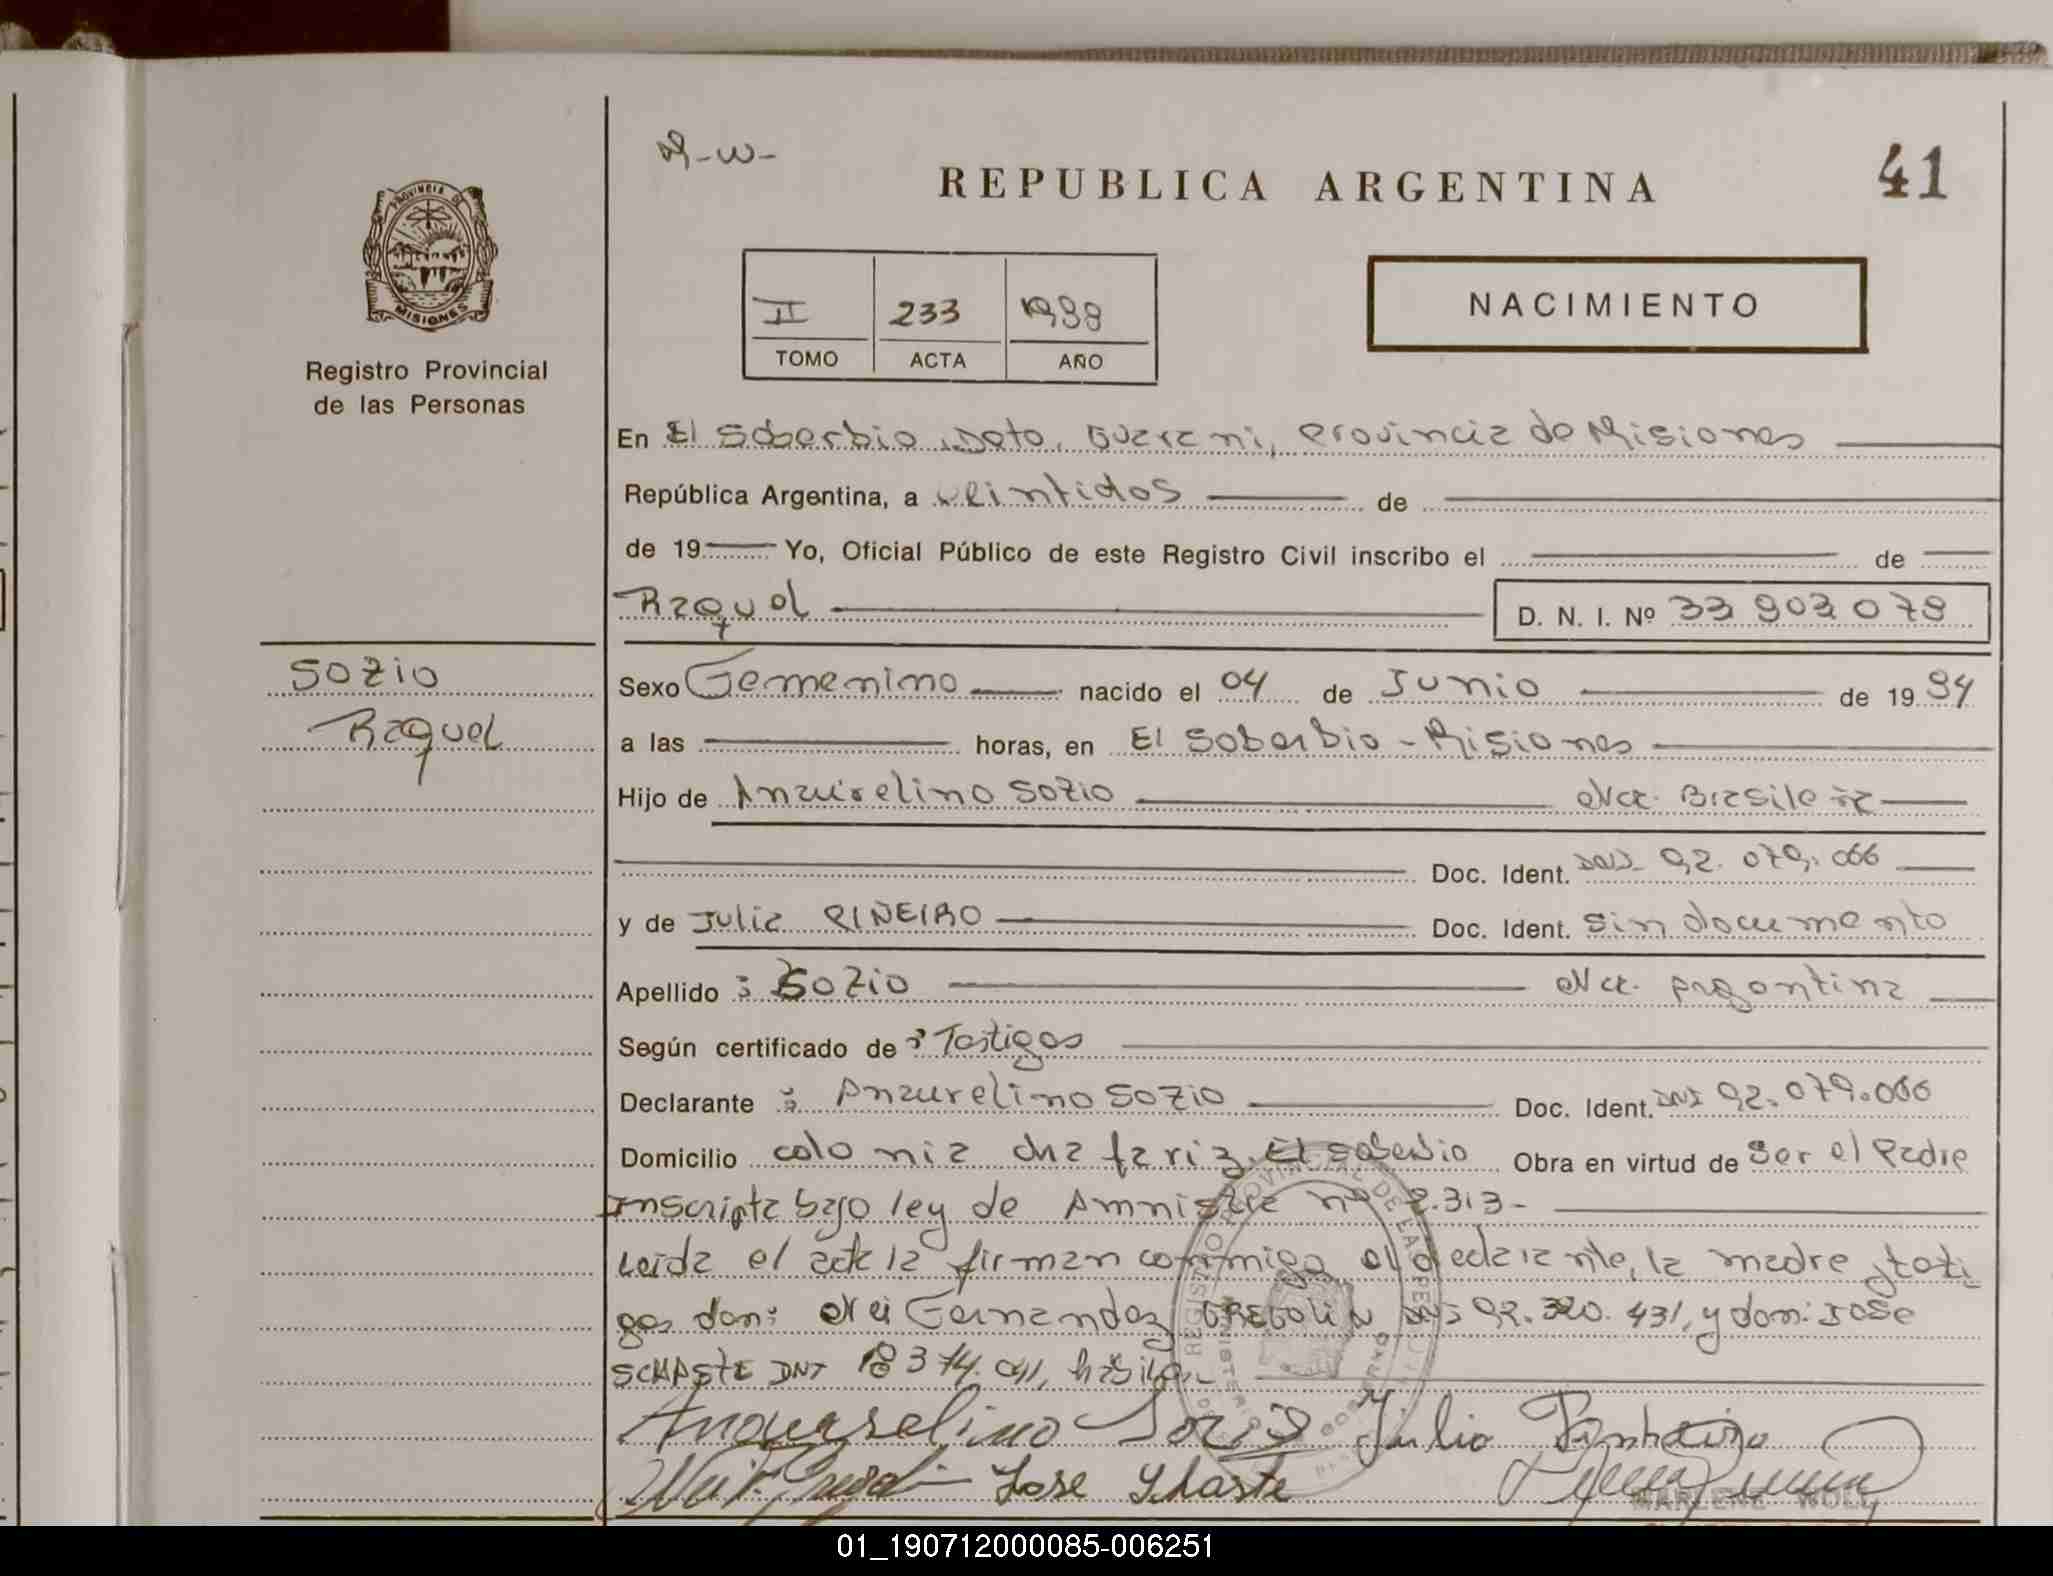 R-W-
REPUBLICA ARGENTINA
41
PROVINCIA DE
MISIONES
Registro Provincial
de las Personas
II 233 1988
TOMO ACTA AÑO
NACIMIENTO
En El Soberbio, Dpto. Guarani, Provincia de Misiones
República Argentina, a veintidos de
de 19 Yo, Oficial Público de este Registro Civil inscribo el de
Raquel
D. N. I. Nº 33 903 079
Sozio
Raquel
Sexo Femenino nacido el 04 de Junio de 19 84
a las horas, en El Soberbio - Misiones
Hijo de Anaurelino Sozio Nac. Brasileña
Doc. Ident. DNI 92.079.066
y de Julia PIÑEIRO Doc. Ident. sin documento
Apellido : Sozio Nac. Argentina
Según certificado de : Testigos
Declarante : Anaurelino Sozio Doc. Ident. DNI 92.079.066
Domicilio colonia chafariz, El Soberbio Obra en virtud de ser el Padre
Inscripta bajo ley de Amnistia nº 2.313-
Leida el acta la firman conmigo el declarante, la madre y testi
gos don: Nei Fernandez GREGOLIN DNI 92.320.431, y don: Jose
SCHASTE DNI 18 374.041, habiles
Anaurelino Sozio Julia
Jose
MARLENE WOLL
01_190712000085-006251